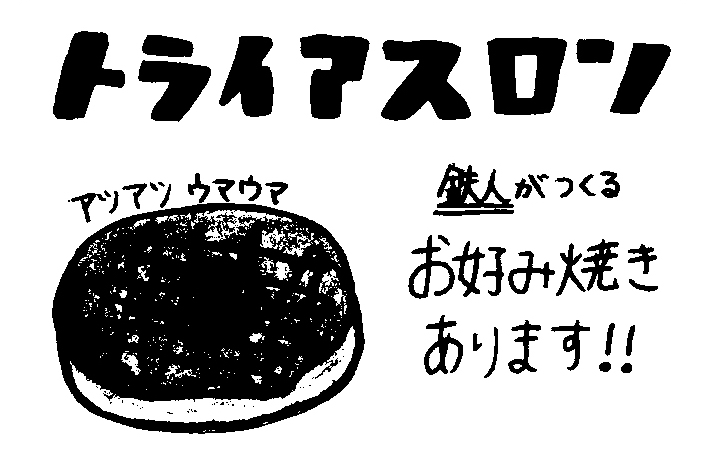 トライアスロン
アツアツ ウマウマ
鉄人がつくる
お好み焼き
あります!!